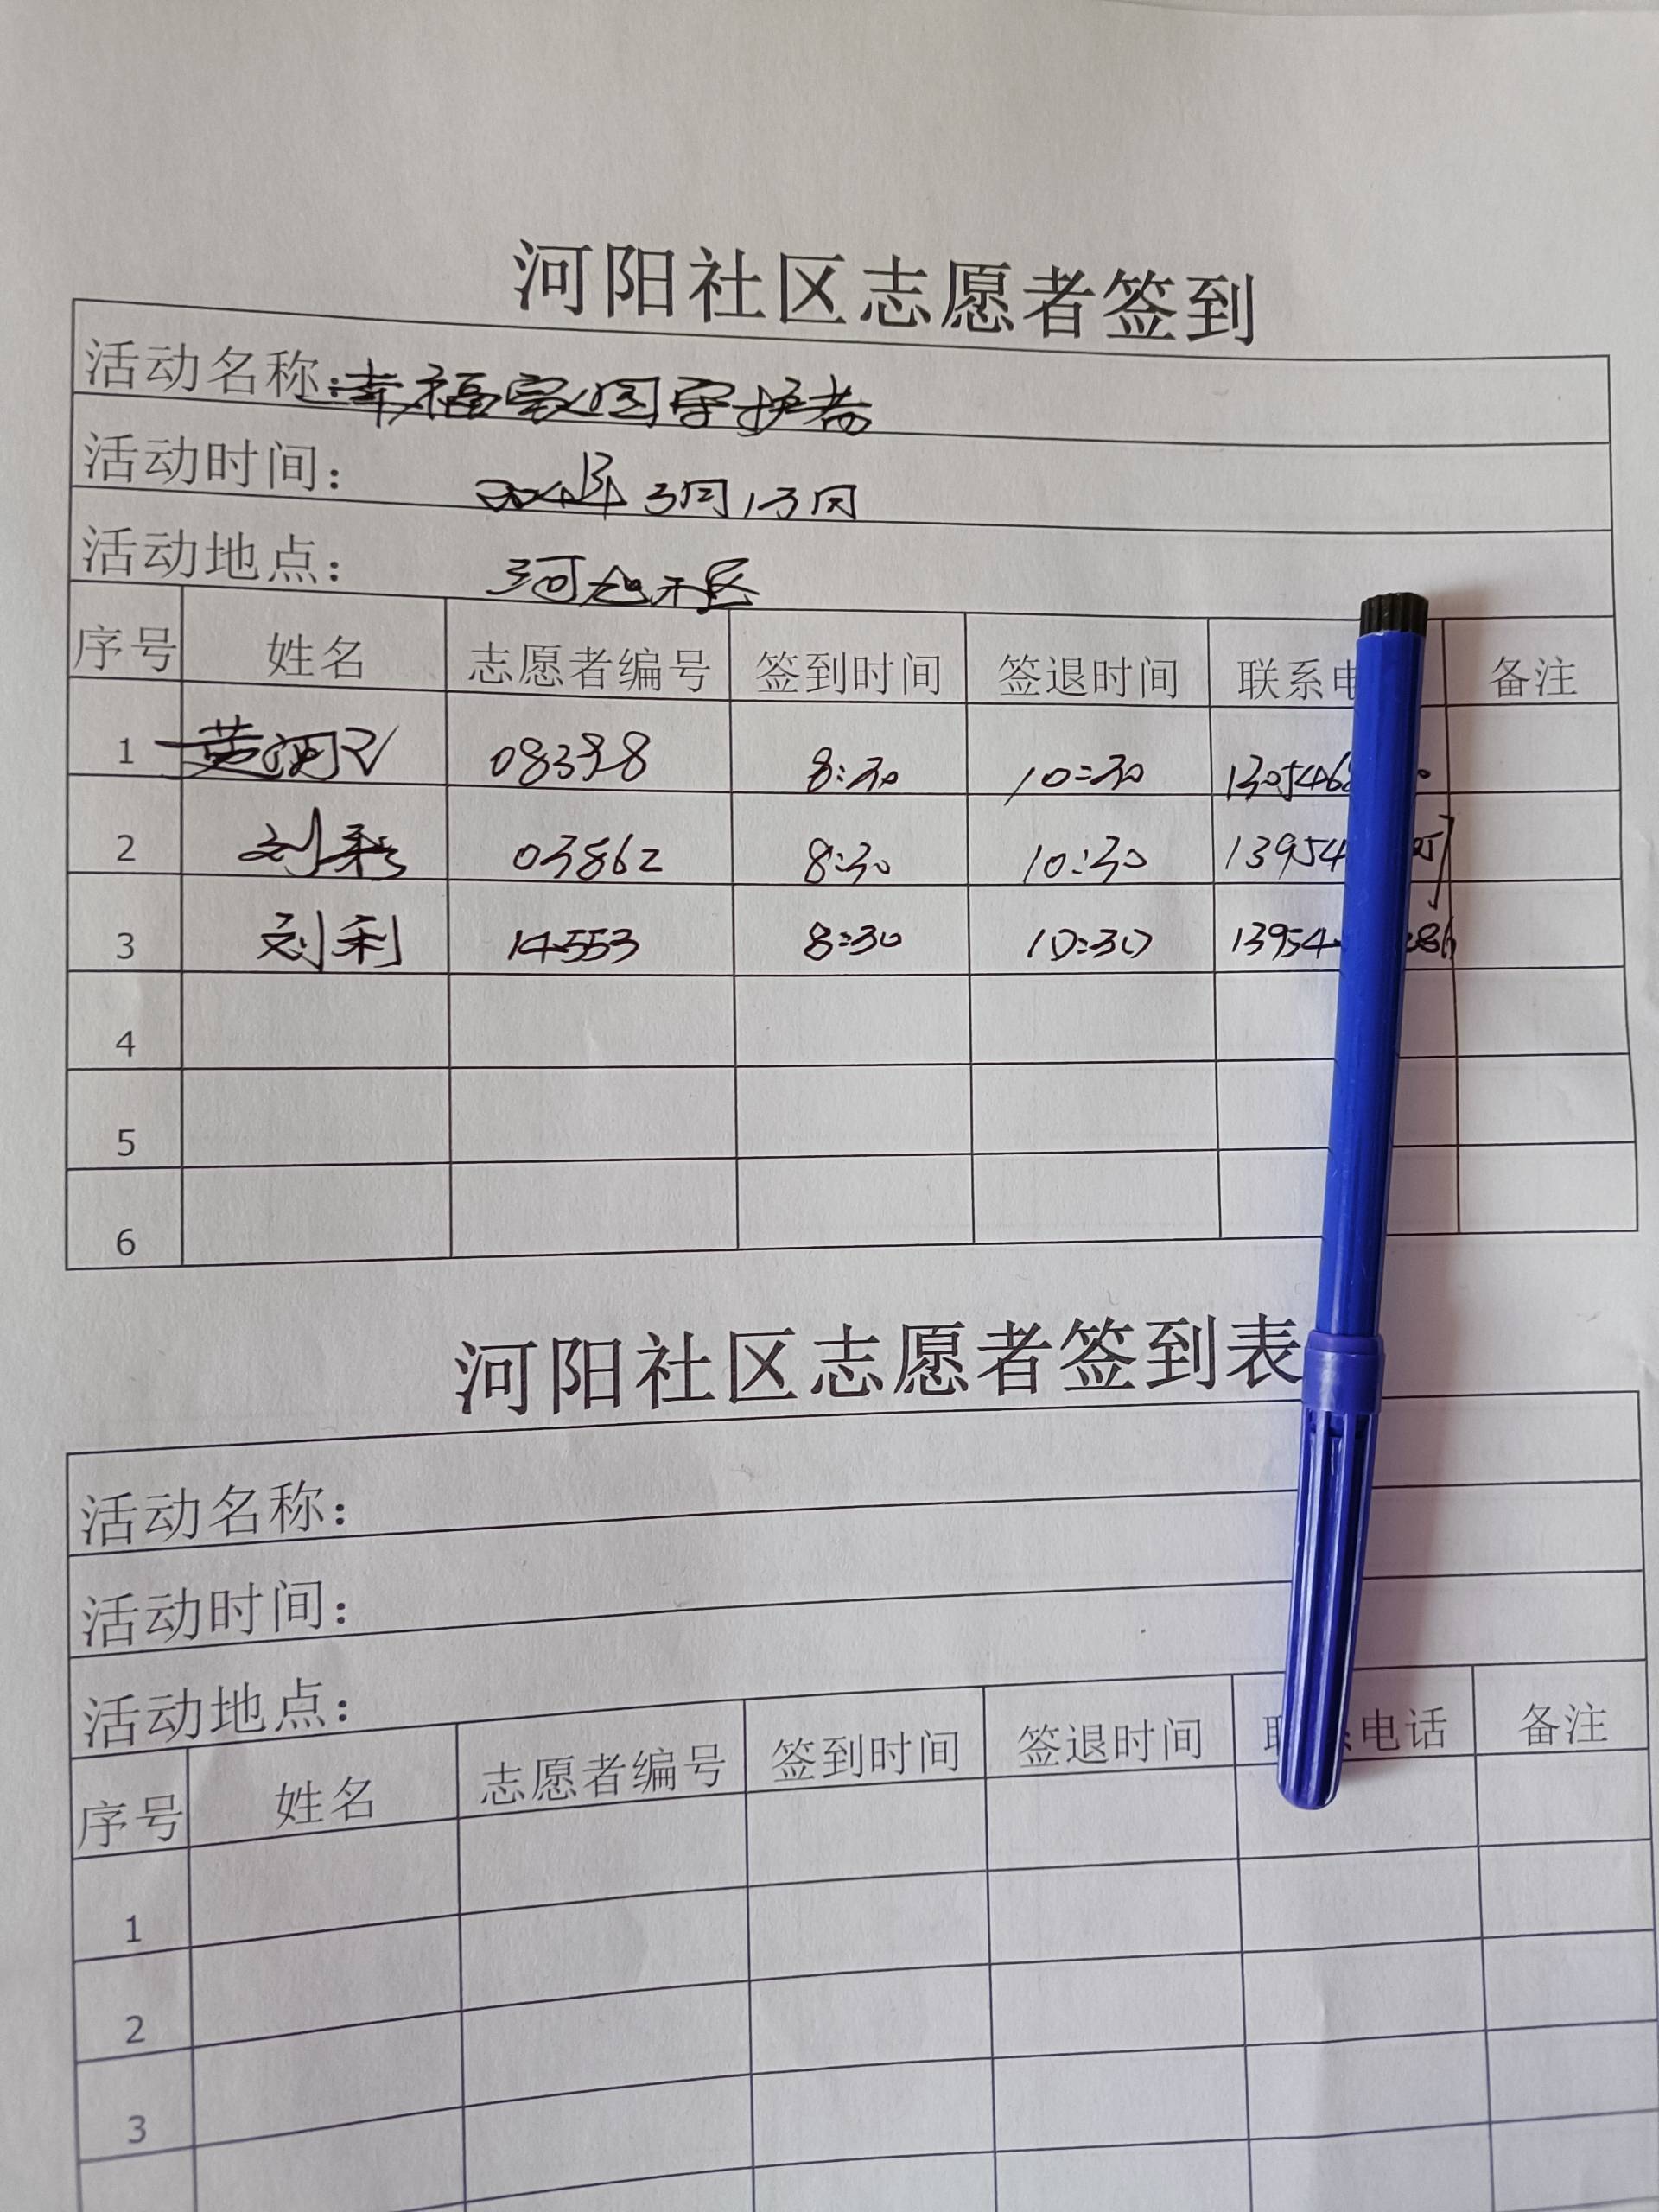 河阳社区志愿者签到
活动名称：幸福家园守护者
活动时间： 3月13日
活动地点： 河阳社区
序号 姓名 志愿者编号 签到时间 签退时间 联系电 备注
1 08398 8:30 10:30
2 刘 03862 8:30 10:30 13954
3 刘利 14553 8:30 10:30 13954
4
5
6
河阳社区志愿者签到表
活动名称：
活动时间：
活动地点：
序号 姓名 志愿者编号 签到时间 签退时间 联系电话 备注
1
2
3